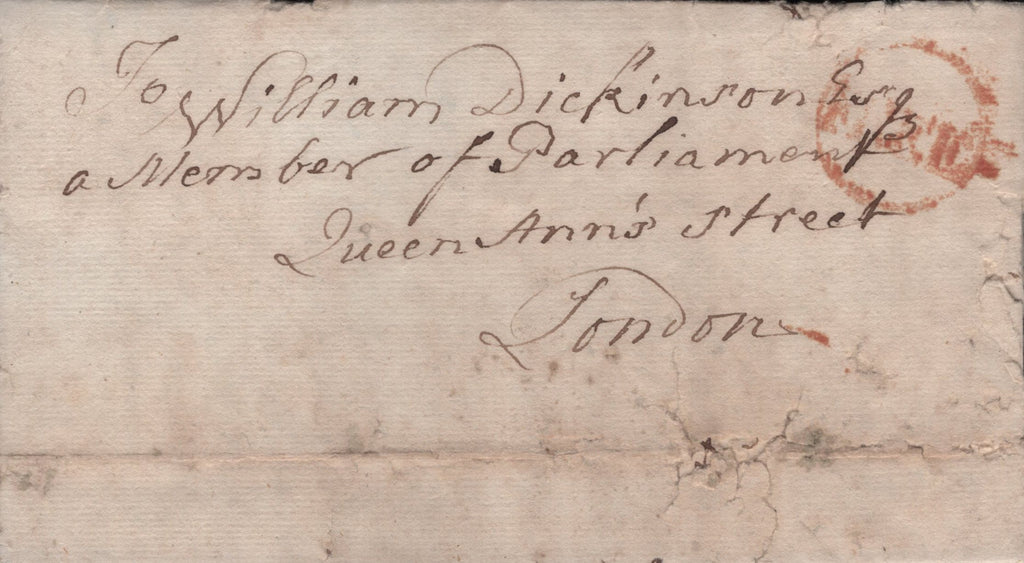 To William Dickinson Esqr
a Member of Parliament
Queen Ann's street
London